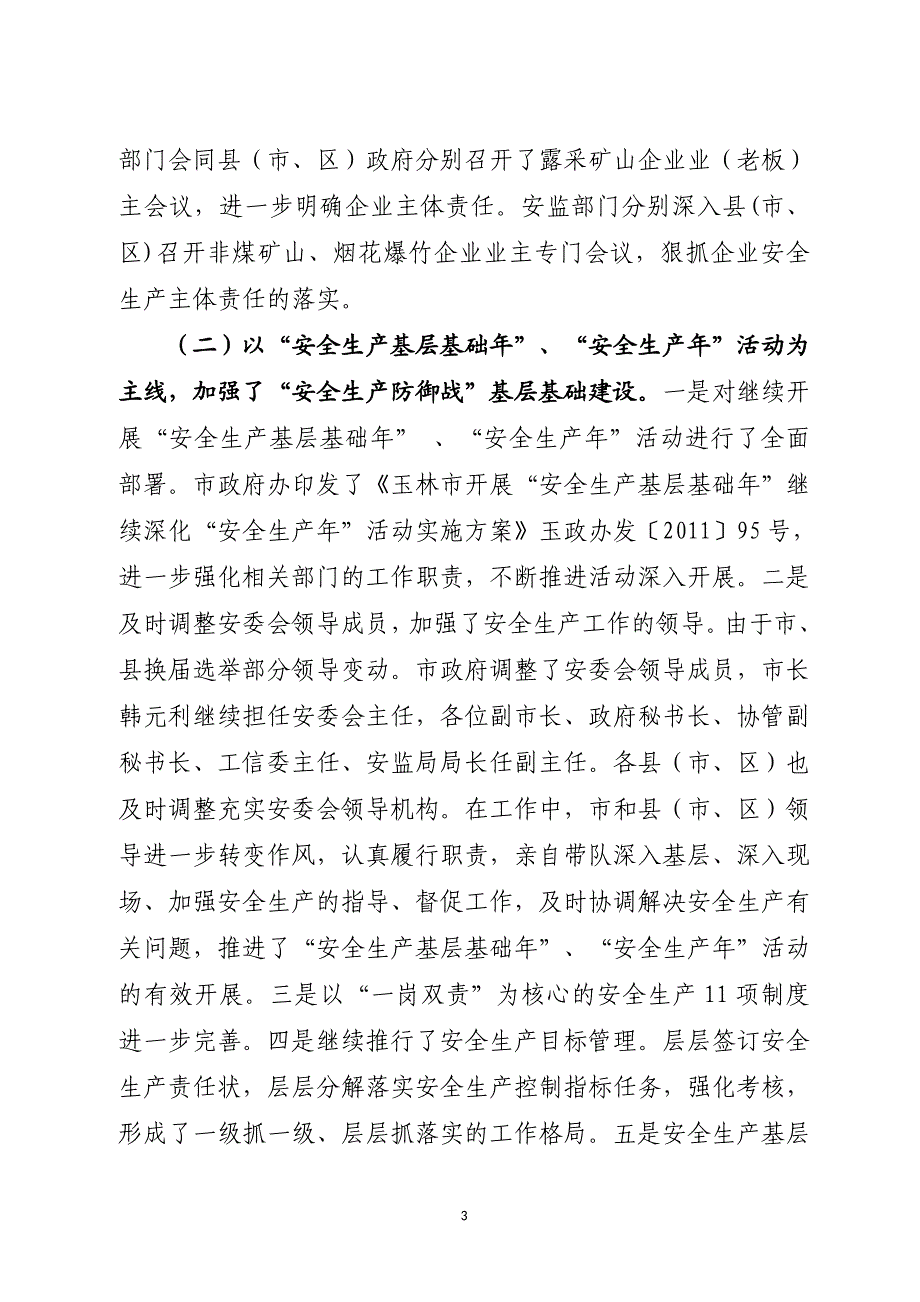 部门会同县（市、区）政府分别召开了露采矿山企业业（老板）
主会议，进一步明确企业主体责任。安监部门分别深入县(市、
区)召开非煤矿山、烟花爆竹企业业主专门会议，狠抓企业安全
生产主体责任的落实。
（二）以“安全生产基层基础年”、“安全生产年”活动为
主线，加强了“安全生产防御战”基层基础建设。一是对继续开
展“安全生产基层基础年” 、“安全生产年”活动进行了全面
部署。市政府办印发了《玉林市开展“安全生产基层基础年”继
续深化“安全生产年”活动实施方案》玉政办发〔2011〕95 号，
进一步强化相关部门的工作职责，不断推进活动深入开展。二是
及时调整安委会领导成员，加强了安全生产工作的领导。由于市、
县换届选举部分领导变动。市政府调整了安委会领导成员，市长
韩元利继续担任安委会主任，各位副市长、政府秘书长、协管副
秘书长、工信委主任、安监局局长任副主任。各县（市、区）也
及时调整充实安委会领导机构。在工作中，市和县（市、区）领
导进一步转变作风，认真履行职责，亲自带队深入基层、深入现
场、加强安全生产的指导、督促工作，及时协调解决安全生产有
关问题，推进了“安全生产基层基础年”、“安全生产年”活动
的有效开展。三是以“一岗双责”为核心的安全生产 11 项制度
进一步完善。四是继续推行了安全生产目标管理。层层签订安全
生产责任状，层层分解落实安全生产控制指标任务，强化考核，
形成了一级抓一级、层层抓落实的工作格局。五是安全生产基层
3